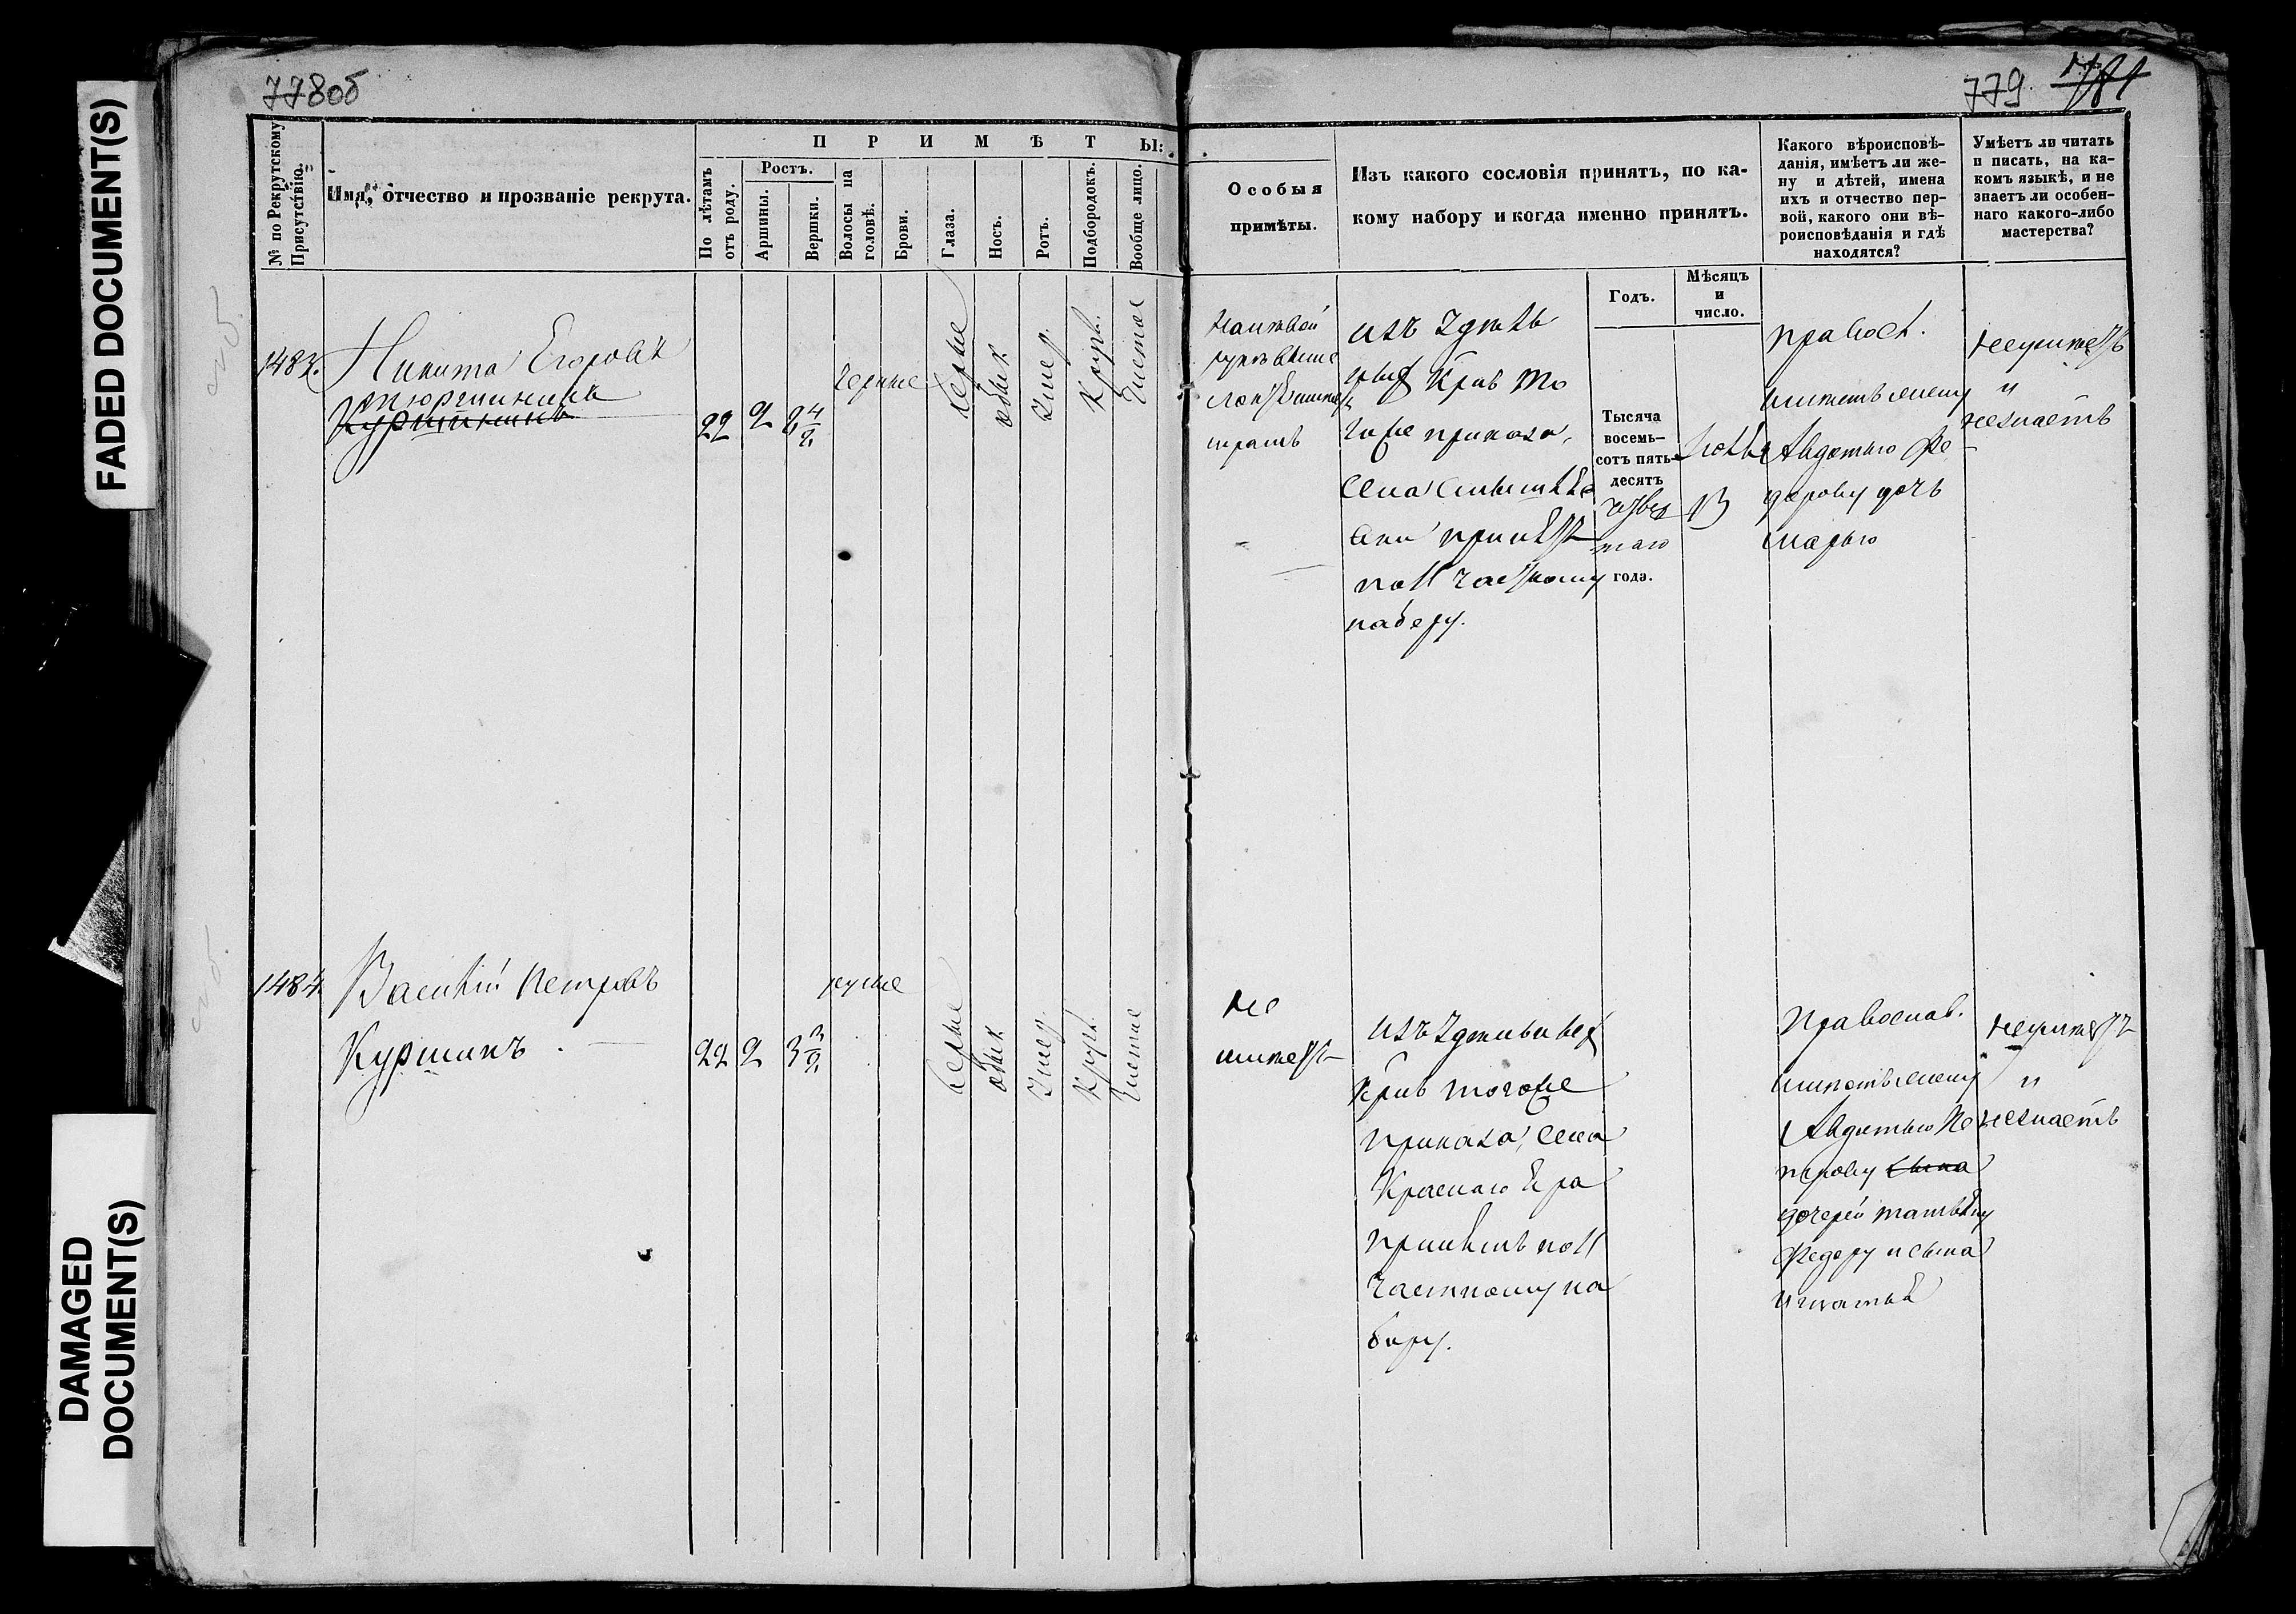 FADED DOCUMENT(S)
DAMAGED
DOCUMENT(S)
778об
№ по Рекрутскому
Присутствію.
Имя, отчество и прозваніе рекрута.
ПРИМѢТЫ:
По лѣтамъ
отъ роду.
Ростъ.
Аршины.
Вершки.
Волосы на
головѣ.
Брови.
Глаза.
Носъ.
Ротъ.
Подбородокъ.
Вообще лицо.
1483.
Никита Егоровъ
22
2
2 4/8
черные
серые
обык.
Умер.
Кругл.
Чистое
1484
Василій Петровъ
Куршинъ
22
2
3 3/8
русые
серые
обык.
Умер.
Кругл.
Чистое
779.
781
Особыя
примѣты.
Изъ какого сословія принятъ, по ка-
кому набору и когда именно принятъ.
Годъ.
Мѣсяцъ
и
число.
Какого вѣроисповѣ-
данія, имѣетъ ли же-
ну и дѣтей, имена
ихъ и отчество пер-
вой, какого они вѣ-
роисповѣданія и гдѣ
находятся?
Умѣетъ ли читать
и писать, на ка-
комъ языкѣ, и не
знаетъ ли особен-
наго какого-либо
мастерства?
изъ Удѣль
ныхъ Крив То
гоже приказа,
Села
принятъ
по 11 частному
набору.
Тысяча
восемь-
сотъ пять-
десятъ
четвер
таго
года.
13
правосл.
имѣетъ жену
Авдотью Фе
дорову дочь
Марью
неумѣетъ
и
незнаетъ
не
имѣетъ
изъ Удѣльныхъ
Крив тогоже
приказа, Села
Краснаго Яра
принятъ по 11
частному на
бору.
Православ.
имѣетъ жену
Авдотью Пе
трову сына
дочерей Татьяну
Федору и сына
Игнатья
неумѣетъ
и
незнаетъ